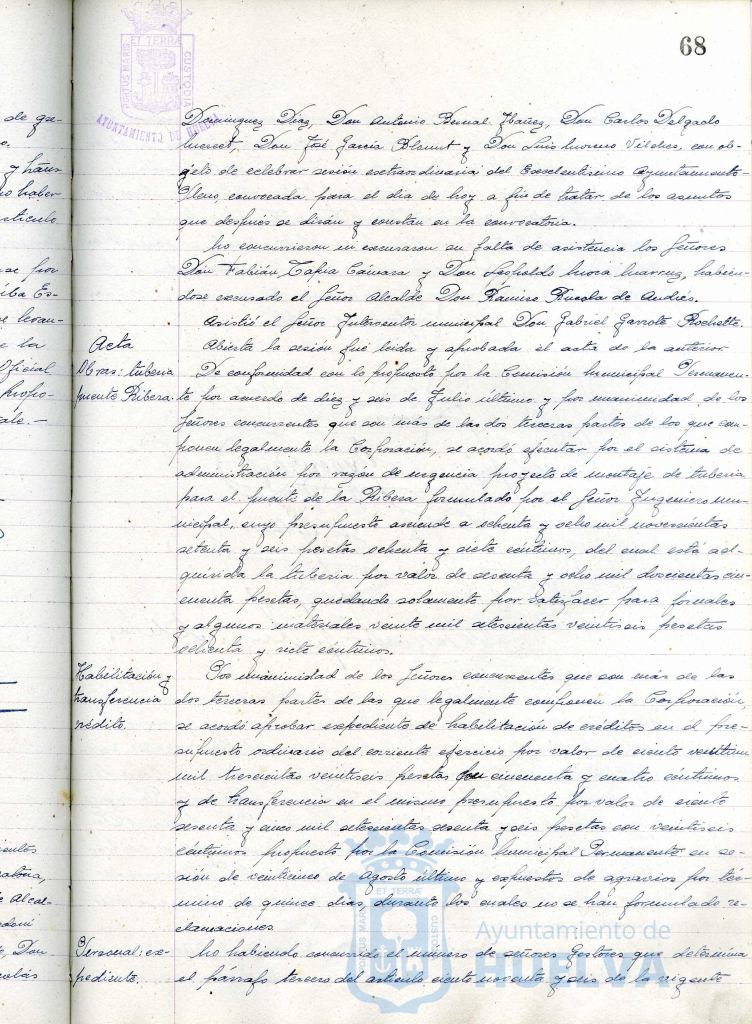 68
PORTUS MARIS ET TERRÆ CUSTODIA
AYUNTAMIENTO DE HUELVA
Dominguez Díaz, Don Antonio Bernal Ibáñez, Don Carlos Delgado
Don José García Blanut y Don Luis Moreno Vilches, con ob-
jeto de celebrar sesión extraordinaria del Excelentísimo Ayuntamiento
Pleno, convocada para el día de hoy a fin de tratar de los asuntos
que después se dirán y constan en la convocatoria.
No concurrieron ni excusaron su falta de asistencia los Señores
Don Fabián Tapia Cámara y Don Leopoldo habién-
dose excusado el Señor Alcalde Don Ramiro de Andrés.
Asistió el Señor Interventor municipal Don Gabriel Garrote Rochette.
Acta
Abierta la sesión fué leída y aprobada el acta de la anterior.
Obras: tuberia
puente Ribera.
De conformidad con lo propuesto por la Comisión Municipal Permanen-
te por acuerdo de diez y seis de Julio último y por unanimidad de los
Señores concurrentes que son más de las dos terceras partes de los que com-
ponen legalmente la Corporación, se acordó ejecutar por el sistema de
administración por razón de urgencia proyecto de montaje de tuberia
para el puente de la Ribera formulado por el Señor Ingeniero mu-
nicipal, cuyo presupuesto asciende a ochenta y ocho mil novecientas
setenta y seis pesetas ochenta y siete centimos, del cual está ad-
quirida la tuberia por valor de sesenta y ocho mil doscientas cin-
cuenta pesetas, quedando solamente por satisfacer para jornales
y algunos materiales veinte mil setecientas veintiseis pesetas
ochenta y siete centimos.
Habilitación y
transferencia
crédito.
Por unanimidad de los Señores concurrentes que son más de las
dos terceras partes de las que legalmente componen la Corporación,
se acordó aprobar expediente de habilitación de créditos en el pre-
supuesto ordinario del corriente ejercicio por valor de ciento
mil trescientas veintiseis pesetas cincuenta y cuatro centimos
y de transferencia en el mismo presupuesto por valor de ciento
sesenta y cinco mil setecientas sesenta y seis pesetas con veintiseis
centimos propuesto por la Comisión Municipal Permanente en se-
sión de veinticinco de Agosto último y expuestos de agravios por tér-
mino de quince días, durante los cuales no se han formulado re-
clamaciones.
Personal: ex-
pediente.
No habiendo concurrido el número de señores Gestores que determina
el párrafo tercero del articulo ciento noventa y seis de la vigente
Ayuntamiento de
HUELVA